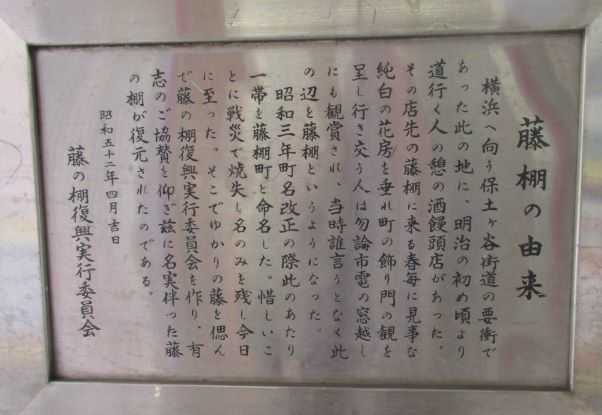 藤棚の由来
横浜へ向う保土ヶ谷街道の要衝で
あった此の地に、明治の初め頃より
道行く人の憩の酒饅頭店があった。
その店先の藤棚に来る春毎に見事な
純白の花房を垂れ町の飾り門の観を
呈し行き交う人は勿論市電の窓越し
にも観賞され、当時誰言うとなく此
の辺を藤棚というようになった。
昭和三年町名改正の際此のあたり
一帯を藤棚町と命名した。惜しいこ
とに戦災で焼失し名のみを残し今日
に至った。そこでゆかりの藤を偲ん
で藤の棚復興実行委員会を作り、有
志のご協賛を仰ぎ茲に名実伴った藤
の棚が復元されたのである。
昭和五十二年四月吉日
藤の棚復興実行委員会